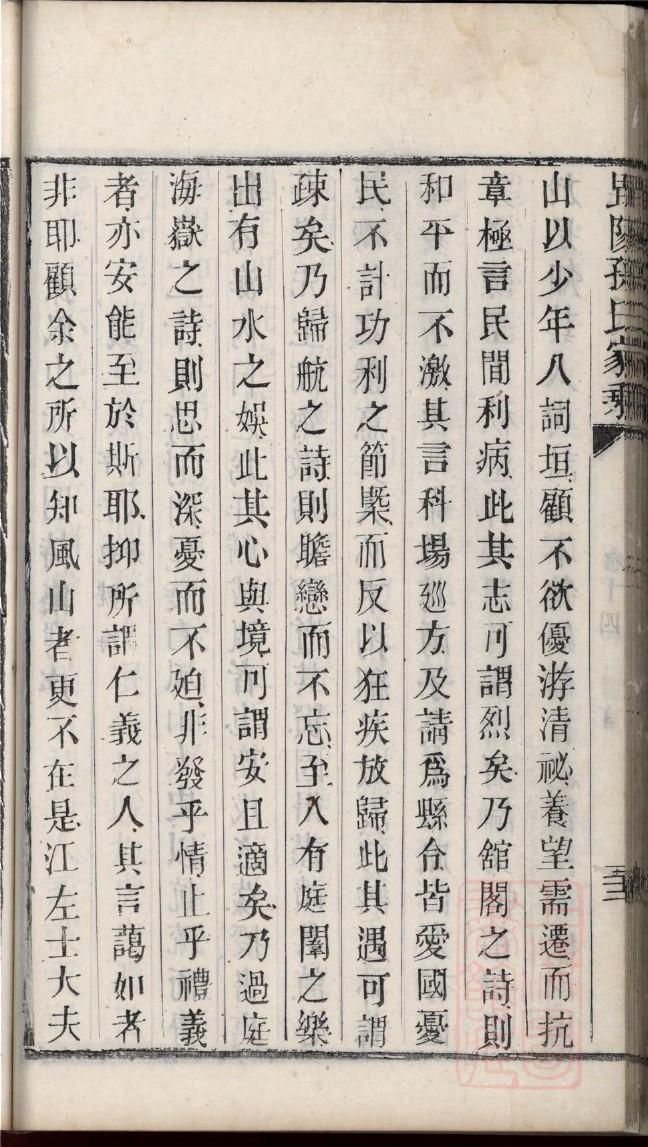 孫氏家乘
山以少年入詞垣顧不欲優游清祕養望需遷而抗
章極言民間利病此其志可謂烈矣乃舘閣之詩則
和平而不激其言科場廵方及請爲縣令皆愛國憂
民不計功利之節槩而反以狂疾放歸此其遇可謂
疎矣乃歸航之詩則瞻戀而不忘至入有庭闈之樂
出有山水之娛此其心與境可謂安且適矣乃過庭
海嶽之詩則思而深憂而不廹非發乎情止乎禮義
者亦安能至於斯耶抑所謂仁義之人其言藹如者
非耶顧余之所以知風山者更不在是江左士大夫